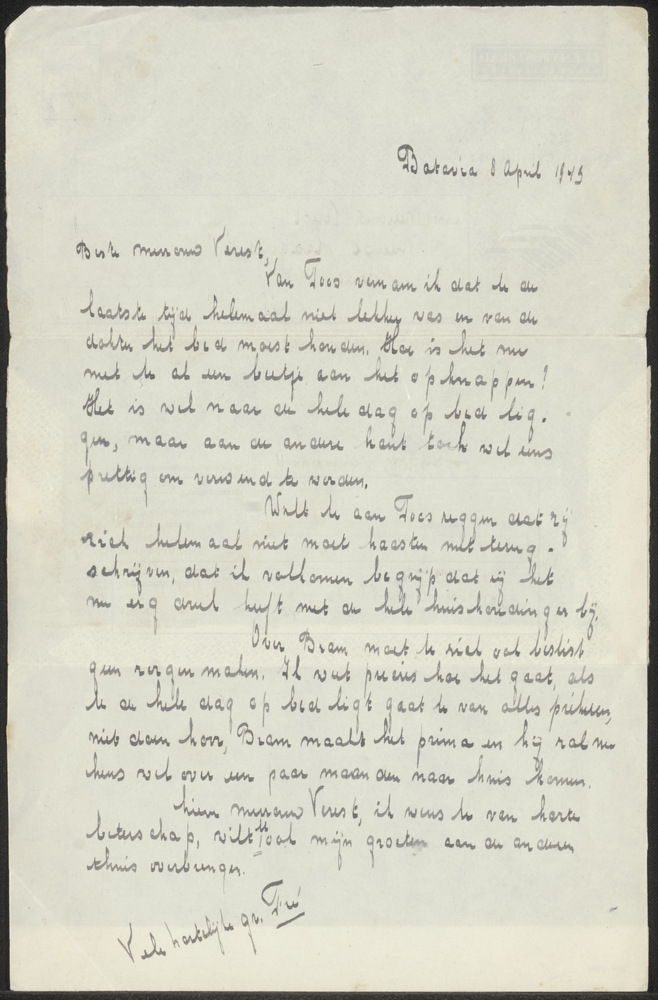 Batavia 8 April 1949
Beste mevrouw Verest,
Van Toos vernam ik dat U de
laatste tijd helemaal niet lekker was en van de
dokter het bed moest houden. Hoe is het nu
met U al een beetje aan het opknappen?
Het is wel naar de hele dag op bed lig-
gen, maar aan de andere kant toch wel eens
prettig om verwend te worden.
Wilt U aan Toos zeggen dat zij
zich helemaal niet moet haasten met terug-
schrijven, dat ik volkomen begrijp dat zij het
nu erg druk heeft met de hele huishouding er bij.
Over Bram moet U zich ook beslist
geen zorgen maken. Ik weet precies hoe het gaat, als
U de hele dag op bed ligt gaat U van alles prikeren,
niet doen hoor, Bram maakt het prima en hij zal nu
heus wel over een paar maanden naar huis komen.
Lieve mevrouw Verest, ik wens U van harte
beterschap, wilt U ook mijn groeten aan de anderen
thuis overbrengen.
Vele hartelijke gr. Fré